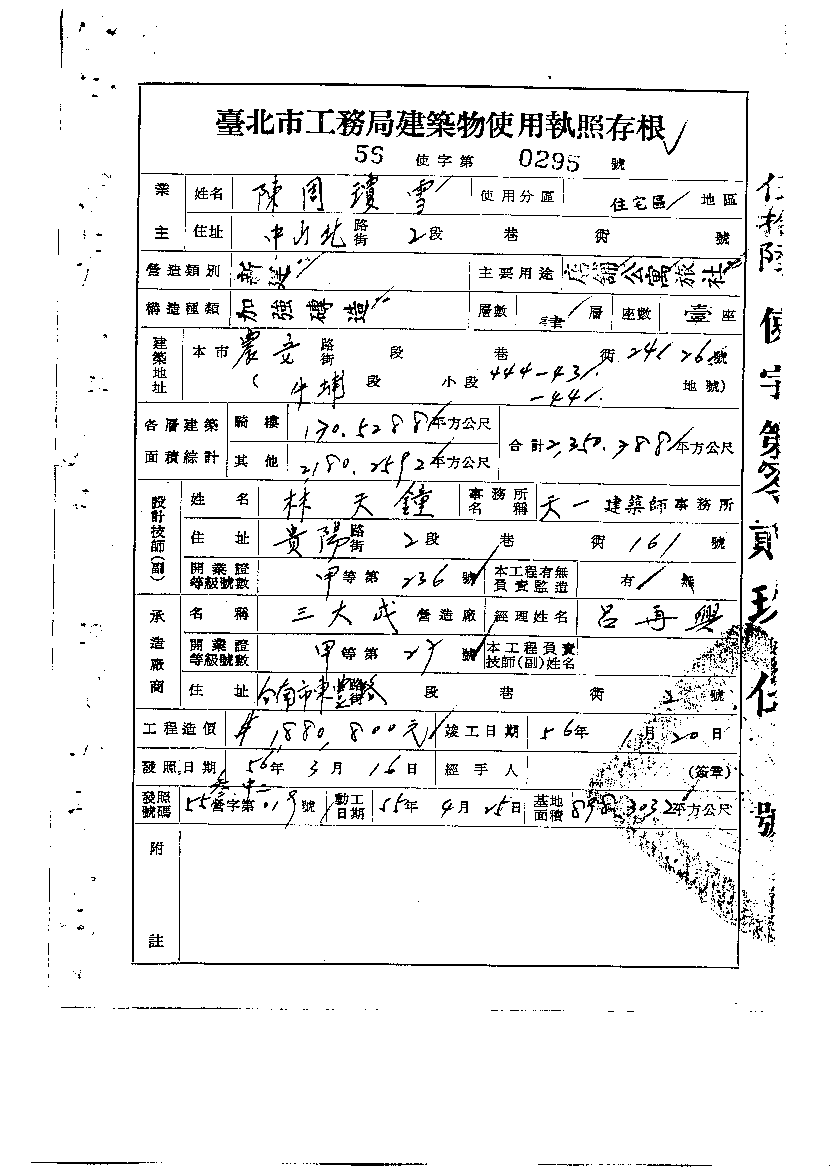 臺北市工務局建築物使用執照存根
56 使字第 0295 號
業主 姓名 陳周瓊雪 使用分區 住宅區 地區
住址 中山北 路街 2段 巷 街 號
營造類別 新建 主要用途 店舖公寓旅社
構造種類 加強磚造 層數 肆 層 座數 壹 座
建築地址 本市 農安 路街 段 巷 街 24,26 號
( 牛埔 段 小段 444-431. 地號)
-441.
各層建築面積綜計 騎樓 170.5288 平方公尺 合計 2,350.788 平方公尺
其他 2180.2592 平方公尺
設計技師(副) 姓名 林天鐘 事務所名稱 天一 建築師事務所
住址 貴陽 路街 2段 巷 街 161 號
開業證等級號數 甲等第 236 號 本工程有無負責監造 有 無
承造廠商 名稱 三大成 營造廠 經理姓名 呂再興
開業證等級號數 甲等第 27 號 本工程負責技師(副)姓名
住址 台南市東豐路 段 巷 街 號
工程造價 1,880,800元 竣工日期 56年 1月 20日
發照日期 56年 3月 16日 經手人 (簽章)
發照號碼 55 營字第 019 號 動工日期 55年 4月 25日 基地面積 898.3032 平方公尺
附註
伍拾陸使字第零貳玖伍號